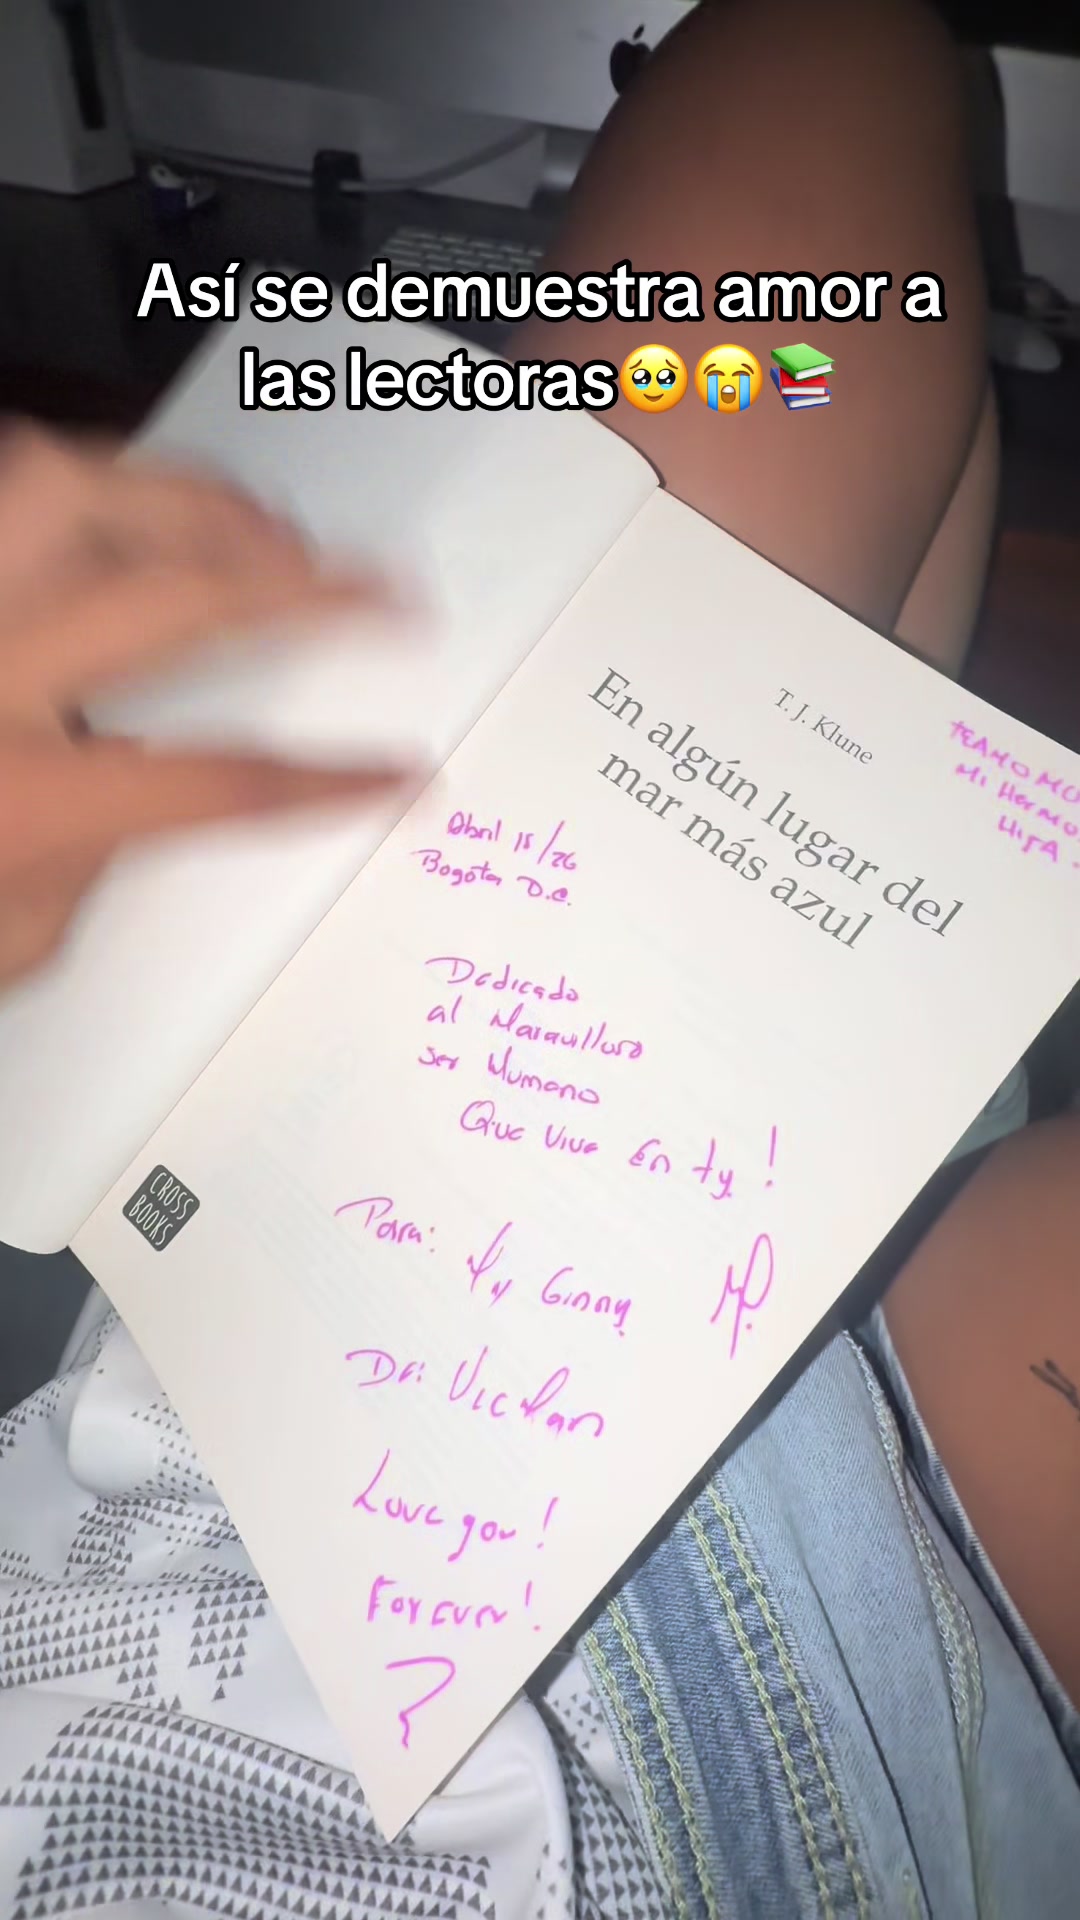 Así se demuestra amor a
las lectoras🥹😭📚
T. J. Klune
En algún lugar del
mar más azul
TEAMO MU
Mi Hermo
HIJA
Abril 15/26
Bogota D.C.
Dedicado
al Maravilloso
ser Humano
Que Vive En ty!
Para: Ginny
De:
Love you!
Forever!
CROSS
BOOKS